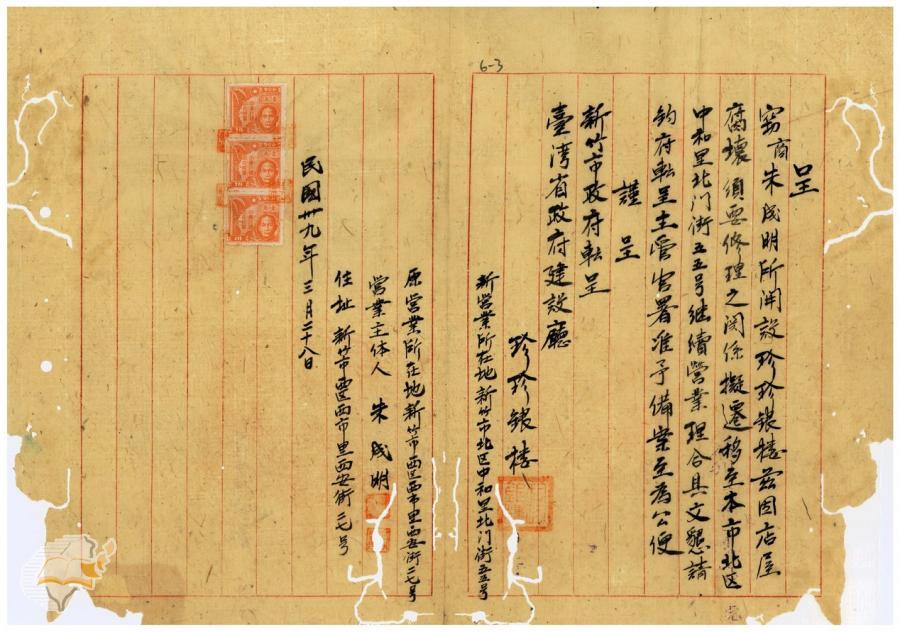 6-3
呈
竊商朱成明所開設珍珍銀楼茲因店屋
腐壞須要修理之関係擬遷移至本市北区
中和里北门街五五号继續營業理合具文懇請
鈞府転呈主管官署准予備案至為公便
謹呈
新竹市政府転呈
臺湾省政府建設廳
珍珍銀楼
新營業所在地新竹市北区中和里北门街五五号
原營業所在地新竹市西区西市里西安街二七号
營業主体人 朱成明
住址 新竹市西区西市里西安街二七号
民國卅九年三月二十八日